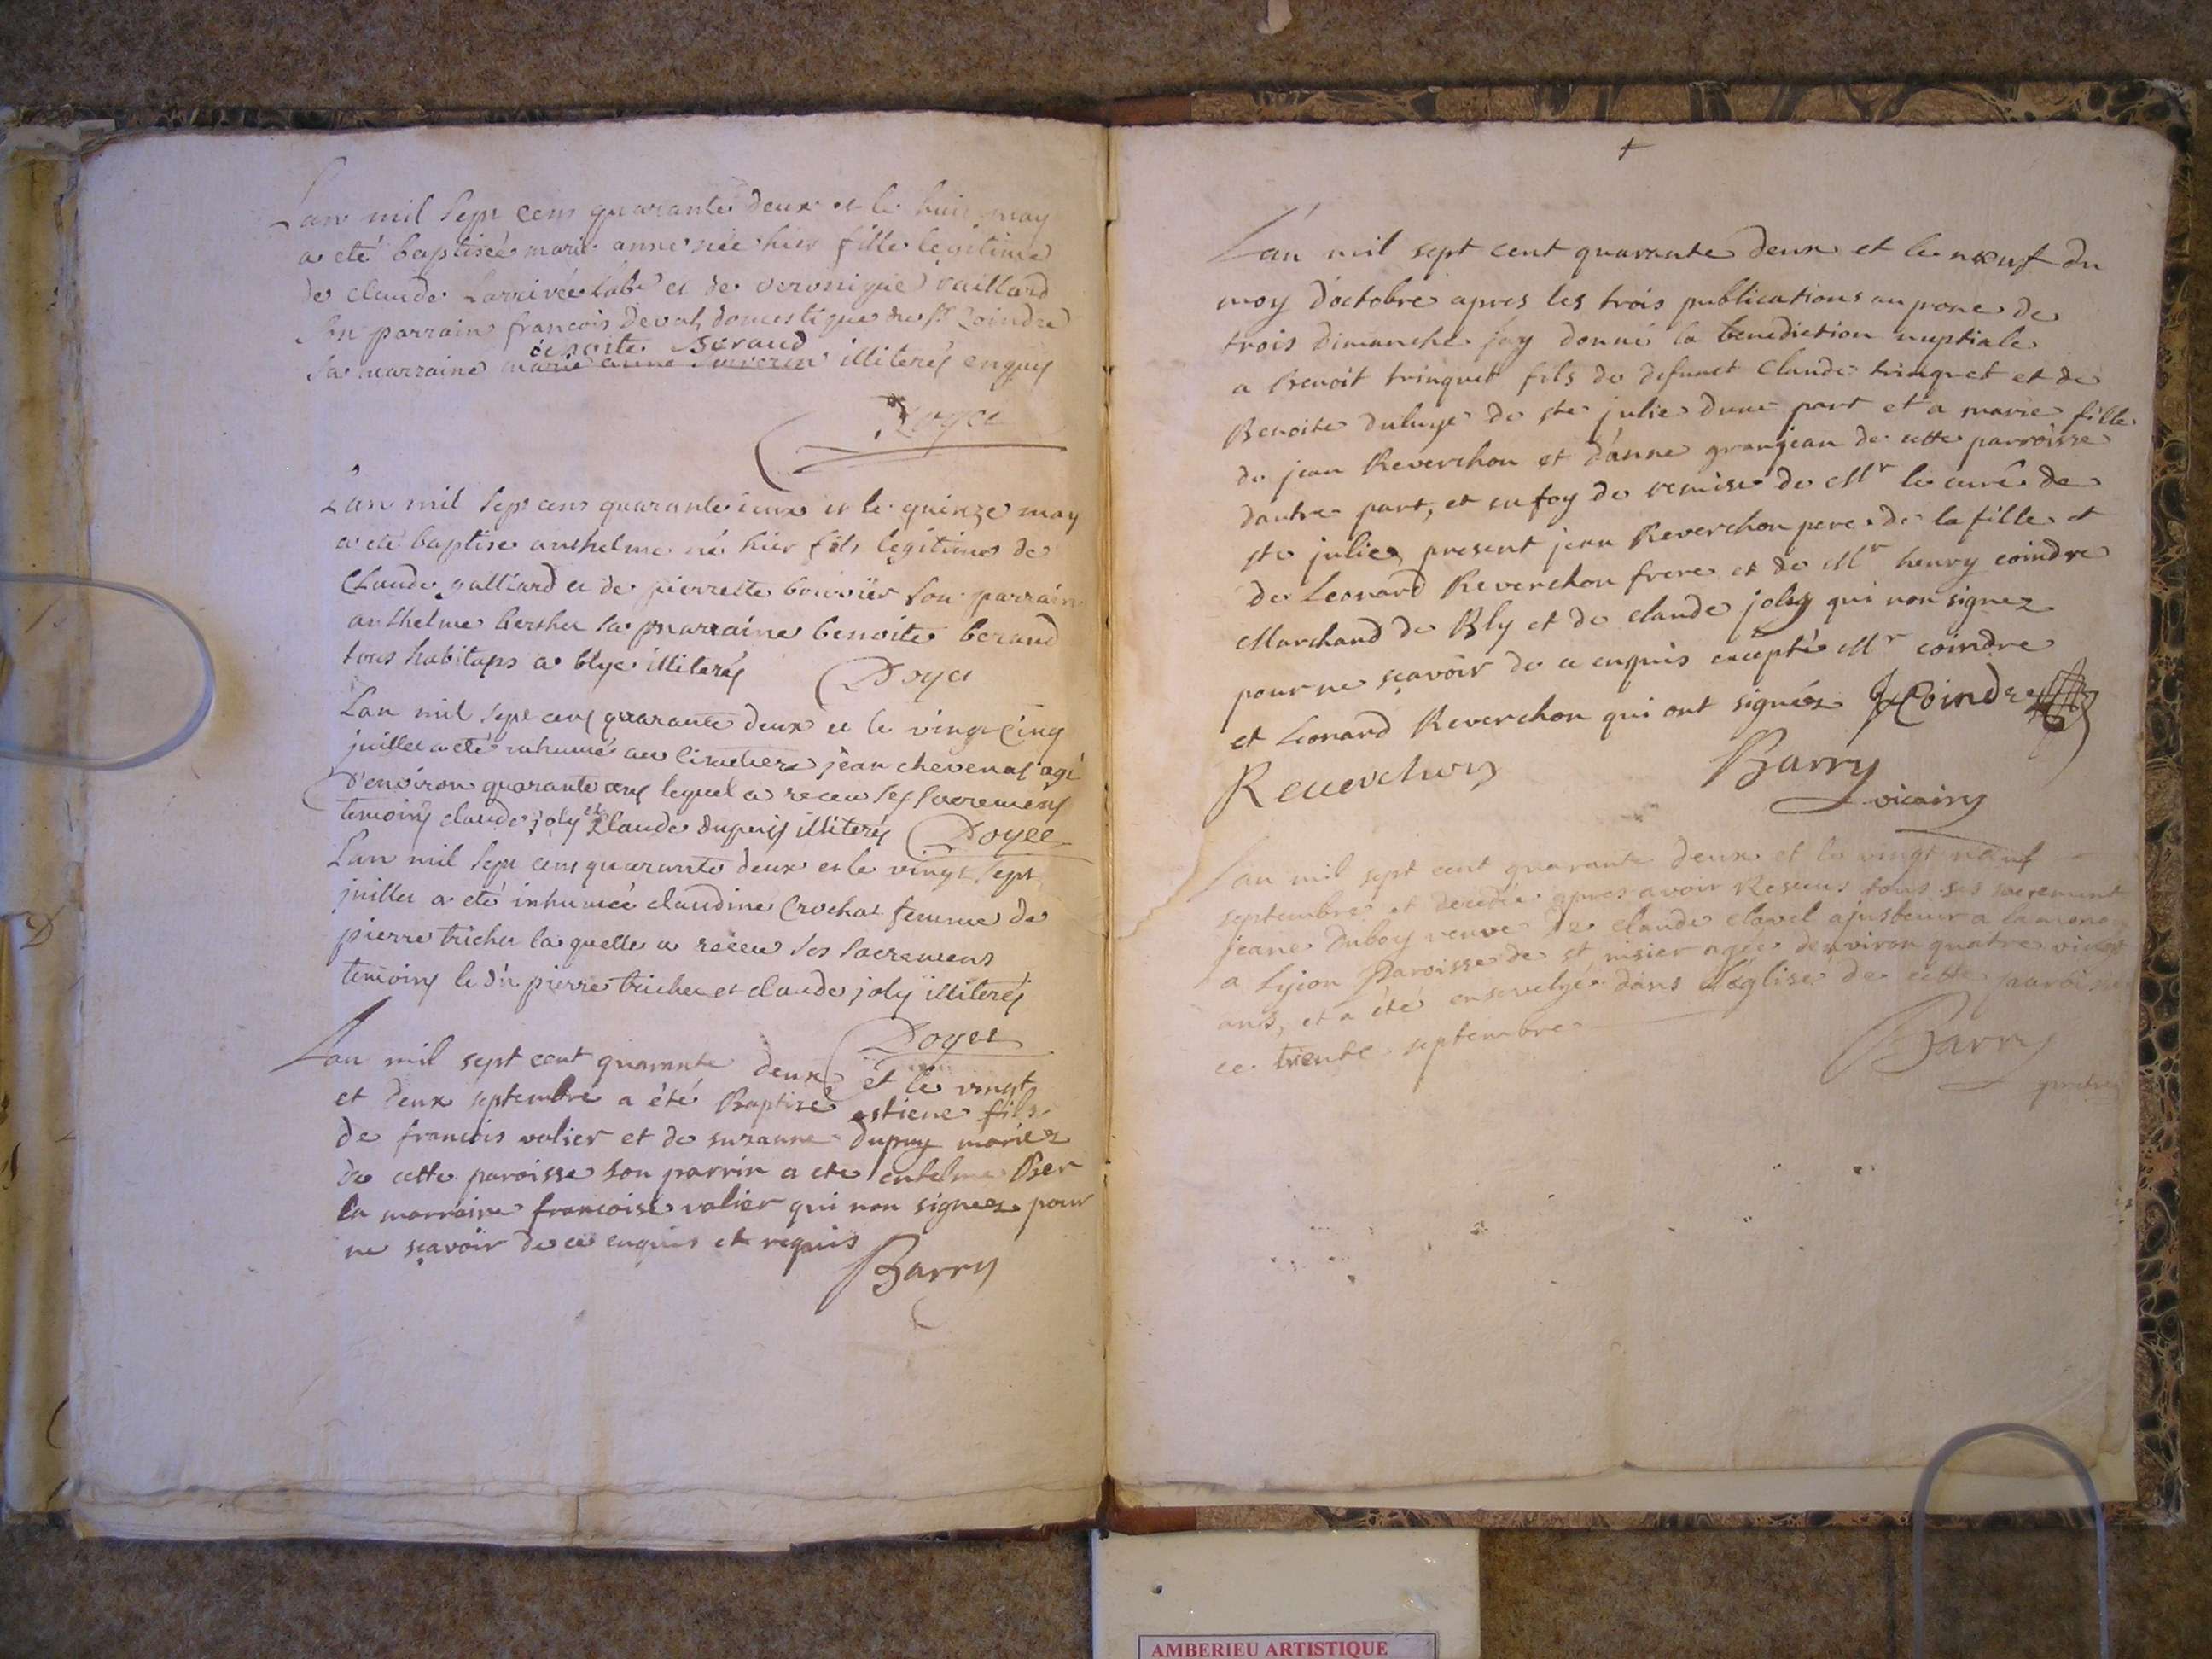 Lan mil sept cens quarante deux et le huit may
a eté baptiseé marie anne née hier fille legitime
de claude Larrivée Labr et de veronique vaillard
son parrain francois deval domestique du Sr Coindre
benoite Beraud
sa marraine marie anne illiterés enquis
Doyet
Lan mil sept cens quarante deux et le quinze may
a eté baptisé anthelme né hier fils legitime de
Claude galliard et de pierrette bouvier son parrain
anthelme berther sa marraine benoite beraud
tous habitans a blye illiterés Doyet
Lan mil sept cens quarante deux et le vingt cinq
juillet a eté inhumé au cimetiere jean chevenas agé
d'environ quarante ans lequel a receu ses sacremens
temoins claude joly et Claude dupuis illiterés Doyet
Lan mil sept cens quarante deux et le vingt sept
juillet a eté inhumée claudine Crochat femme de
pierre trichet laquelle a receu ses sacremens
temoins le dit pierre trichet et claude joly illiterés
Doyet
Lan mil sept cent quarante deux et le vingt
et deux septembre a été Baptisé estiene fils
de francois valier et de suzanne dupuy mariez
de cette paroisse son parrin a ete entelme Ber
la marraine francoise valier qui non signez pour
ne sçavoir de ce enquis et requis
Barry
L'an mil sept cent quarante deux et le neuf du
moy d'octobre apres les trois publications au prone de
trois dimanche jay donné la benediction nuptiale
a Benoit trinquet fils de defunct Claude trinquet et de
Benoite duluye de ste julie dune part et a marie fille
de jean Reverchon et d'anne granjean de cette parroisse
dautre part, et en foy de remise de Mr le curé de
ste julie, present jean Reverchon pere de la fille et
de Leonard Reverchon frere et de Mr henry coindre
Marchand de Bly et de claude joly qui non signez
pour ne sçavoir de ce enquis excepté Mr coindre
et Leonard Reverchon qui ont signéz Coindre
Reverchon Barry
vicaire
Lan mil sept cent quarante deux et le vingt neuf
septembre et decedée apres avoir Reseus tous ses sacrement
jeane duboy veuve de claude clavel ajusteur a la mona
a Lyion Paroisse de st nisier agée d'environ quatre vingt
ans, et a été ensevelyé dans l'église de cette paroisse
ce trente septembre
Barry
pretre
AMBERIEU ARTISTIQUE